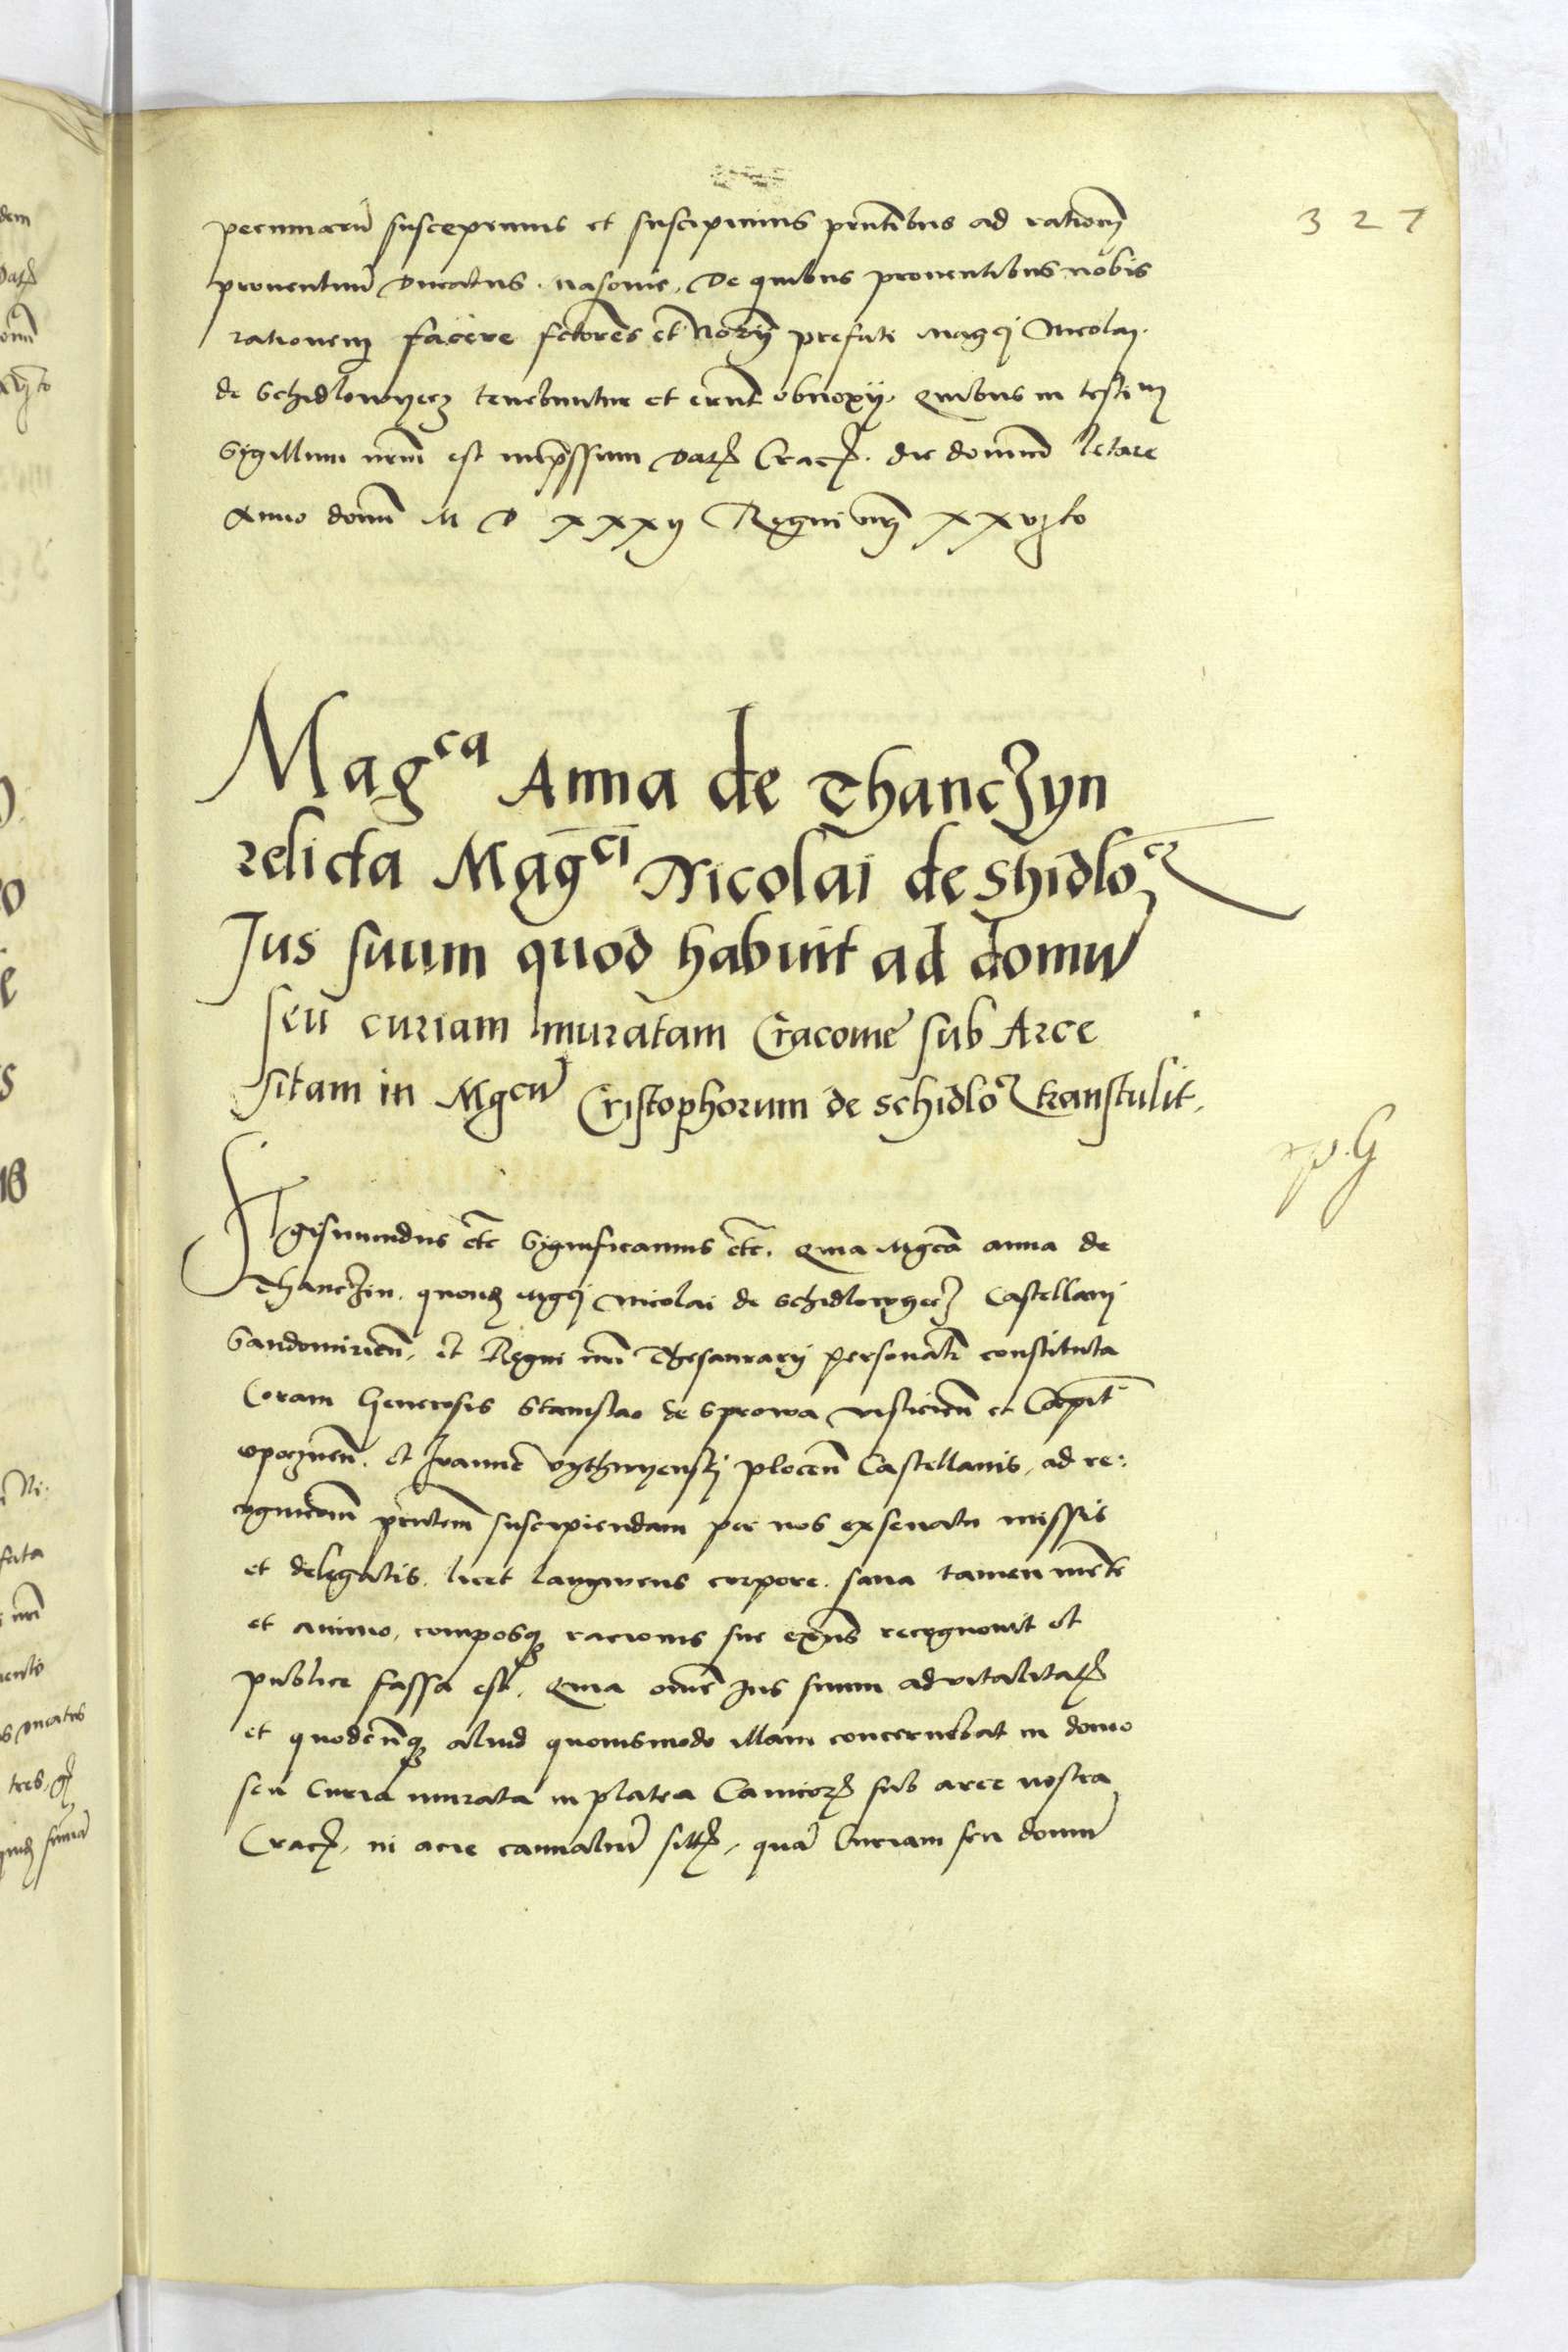 327
pecuniarū suscepimus et suscipimus pn̄tibus ad rationem
proventuū Ducatus Masovie, De quibus proventibus nobis
rationem facere fctores et Notarij prefati Magci Nicolai
de Schidlowyecz tenebuntur et erunt obnoxij. Quibus in testim
Sigillum nrm̄ est impressum Dat Crac die dominico letare
Anno domi M D XXXij Regni nri XXvjto
Magca Anna de Thanczyn
relicta Magci Nicolai de Shidlocz
Jus suum quod habuit ad domū
seu curiam muratam Cracovie sub Arce
sitam in Mgcū Cristophorum de Schidlocz transtulit.
Sigismundus etc Significamus etc. Quia Mgca Anna de
Thanczin quond Mgci Nicolai de Schidlowyecz Castellani
Sandomirien̄. et Regni nri Thesaurarij personalr constituta
Coram Generosis Stanislao de Sprowa vislicien̄ et Capit
opocznen̄. et Joanne plocen̄ Castellanis, ad re:
cognicōm pn̄tem suscipiendam per nos ex senatu missis
et delegatis. licet languens corpore. sana tamen mente
et animo, composque racionis sue exn̄s recognovit et
publice fassa est. Quia omne jus suum advitalitat
et quodcunque aliud quovismodo illam concernebat in domo
seu Curia murata in platea Canicor sub arce nostra
Crac. in acie cannaliū sitt, quā Curiam seu domū